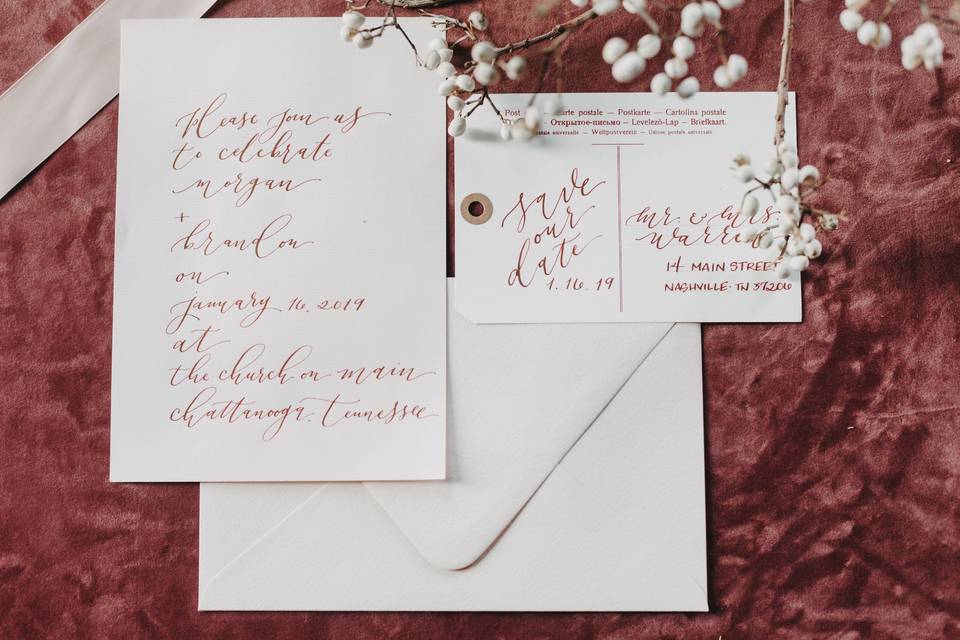 Please join us
to celebrate
morgan
+
brandon
on
january 16, 2019
at
the church on main
chattanooga, Tennessee
Post carte postale — Postkarte — Cartolina postale
Открытое-письмо — Levelező-Lap — Briefkaart.
postale universelle — Weltpostverein — Unione postale universale
save
our
date
1. 16. 19
mr. & mrs.
warren
14 MAIN STREET
NASHVILLE, TN 37206